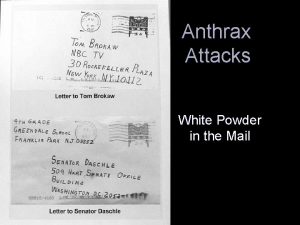 TOM BROKAW
NBC TV
30 ROCKEFELLER PLAZA
NEW YORK NY 10112
Letter to Tom Brokaw
4TH GRADE
GREENDALE SCHOOL
FRANKLIN PARK NJ 08852
SENATOR DASCHLE
509 HART SENATE OFFICE
BUILDING
WASHINGTON DC 2053
Letter to Senator Daschle
Anthrax
Attacks
White Powder
in the Mail